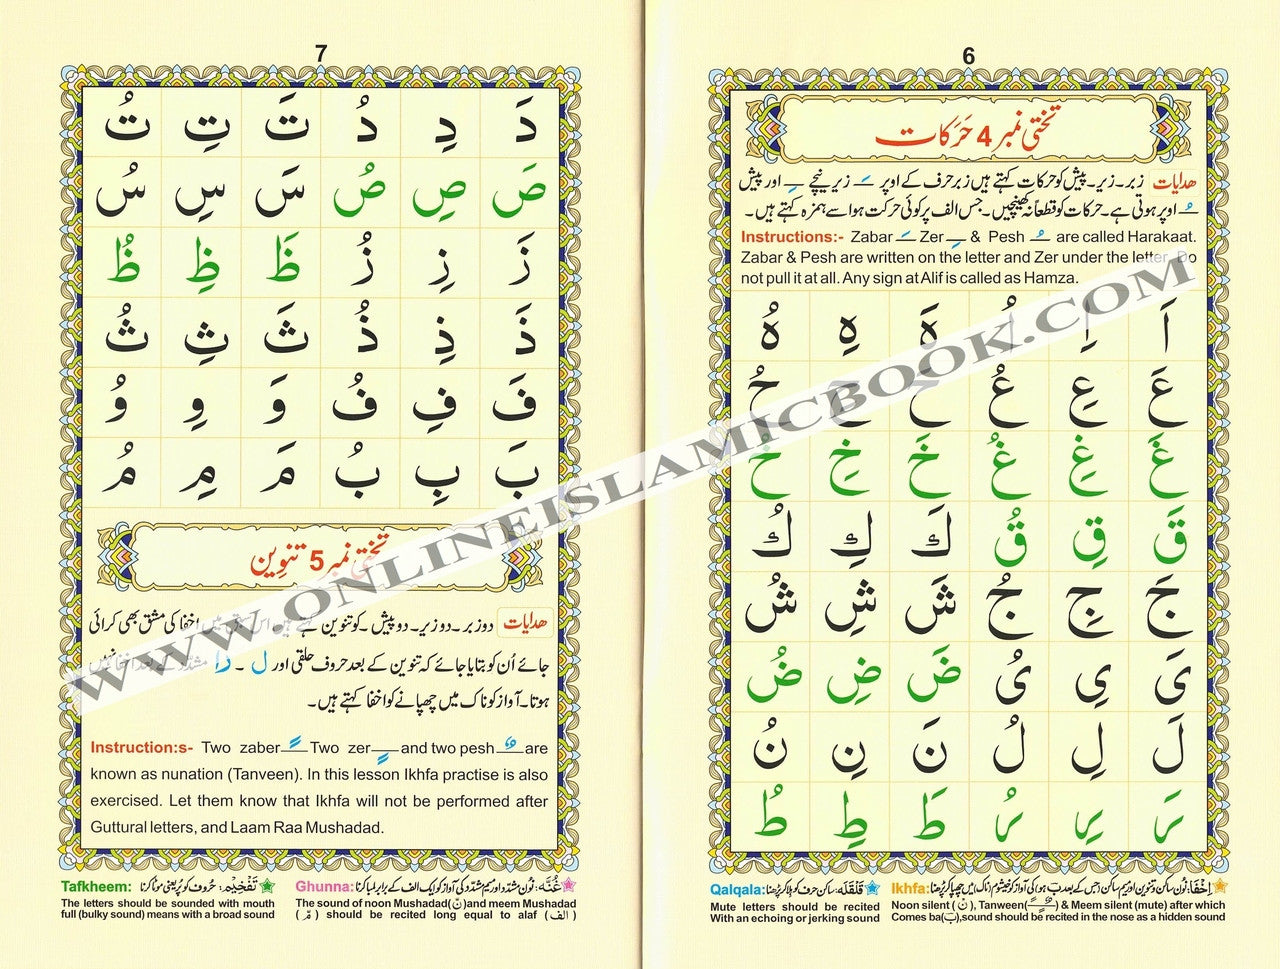 6
تختی نمبر 4 حَرَکات
ھدایات زبر۔ زیر۔ پیش کو حرکات کہتے ہیں زبر حرف کے اوپر ـَـ زیر نیچے ـِـ اور پیش
ـُـ اوپر ہوتی ہے۔ حرکات کو قطعاً نہ کھینچیں۔ جس الف پر کوئی حرکت ہو اسے ہمزہ کہتے ہیں۔
Instructions:- Zabar ـَـ Zer ـِـ & Pesh ـُـ are called Harakaat.
Zabar & Pesh are written on the letter and Zer under the letter. Do
not pull it at all. Any sign at Alif is called as Hamza.
اَ اِ اُ هَ هِ هُ
عَ عِ عُ حَ حِ حُ
غَ غِ غُ خَ خِ خُ
قَ قِ قُ كَ كِ كُ
جَ جِ جُ شَ شِ شُ
يَ يِ يُ ضَ ضِ ضُ
لَ لِ لُ نَ نِ نُ
رَ رِ رُ طَ طِ طُ
اِخْفَا: نون ساکن و تنوین اور میم ساکن (جس کے بعد ب ہو) کی آواز کو خیشوم (ناک) میں چھپا کر پڑھنا Ikhfa:
Noon silent (نْ), Tanween(ـًـٍـٌ) & Meem silent (mute) after which
Comes ba(ب),sound should be recited in the nose as a hidden sound
قَلْقَلَه: ساکن حرف کو ہلا کر پڑھنا Qalqala:
Mute letters should be recited
With an echoing or jerking sound
7
دَ دِ دُ تَ تِ تُ
صَ صِ صُ سَ سِ سُ
زَ زِ زُ ظَ ظِ ظُ
ذَ ذِ ذُ ثَ ثِ ثُ
فَ فِ فُ وَ وِ وُ
بَ بِ بُ مَ مِ مُ
تختی نمبر 5 تنوین
ھدایات دو زبر۔ دو زیر۔ دو پیش۔ کو تنوین کہتے ہیں۔ اس میں اخفا کی مشق بھی کرائی
جائے اُن کو بتایا جائے کہ تنوین کے بعد حروف حلقی اور ل ۔ را مشدّد کے بعد اخفا نہیں
ہوتا۔ آواز کو ناک میں چھپانے کو اخفا کہتے ہیں۔
Instruction:s- Two zaber ـً Two zer ـٍ and two pesh ـٌ are
known as nunation (Tanveen). In this lesson Ikhfa practise is also
exercised. Let them know that Ikhfa will not be performed after
Guttural letters, and Laam Raa Mushadad.
غُنَّه: نون مشدّد اور میم مشدّد کی آواز کو ایک الف کے برابر لمبا کرنا Ghunna:
The sound of noon Mushadad(نّ)and meem Mushadad
(مّ) should be recited long equal to alaf (الف)
تَفْخِيْم: حُروف کو پُر یعنی موٹا کرنا Tafkheem:
The letters should be sounded with mouth
full (bulky sound) means with a broad sound
WWW.ONLINEISLAMICBOOK.COM